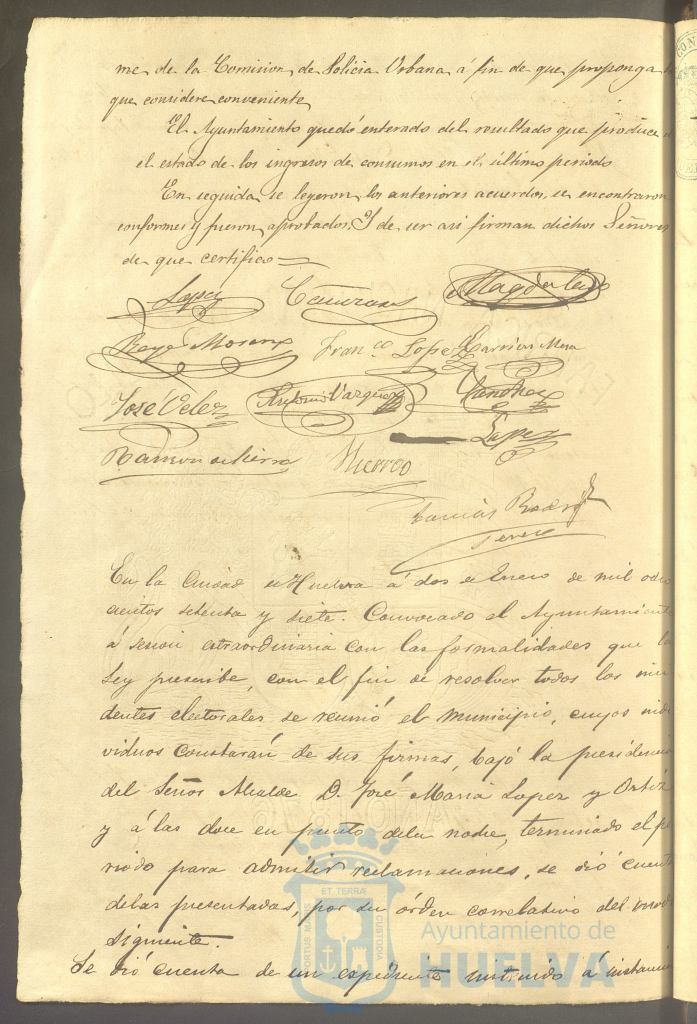 me de la Comision de Policia Urbana á fin de que proponga lo
que considere conveniente
El Ayuntamiento quedó enterado del resultado que produce
el estado de los ingresos de consumos en el último periodo
En seguida se leyeron los anteriores acuerdos, se encontraron
conformes y fueron aprobados. Y de ser asi firman dichos Señores
de que certifico=
Lopez
Magdalena
Francº Lopez
José Velez Antonio Vazquez Sanchez
Lopez
Ramon de Sierra Hierro
Tomás
En la Ciudad de Huelva á dos de Enero de mil ocho
cientos setenta y siete. Convocado el Ayuntamiento
á sesion extraordinaria con las formalidades que la
Ley prescribe, con el fin de resolver todos los inci
dentes electorales se reunió el Municipio, cuyos indi
viduos constarán de sus firmas, bajó la presidencia
del Señor Alcalde D. José Maria Lopez y Ortiz
y á las doce en punto dela noche, terminado el pe
riodo para admitir reclamaciones, se dió cuenta
delas presentadas, por su órden correlativo del modo
siguiente.
Se dió cuenta de un expediente instruido á instancia
PORTUS MARIS ET TERRÆ CUSTODIA
Ayuntamiento de
HUELVA